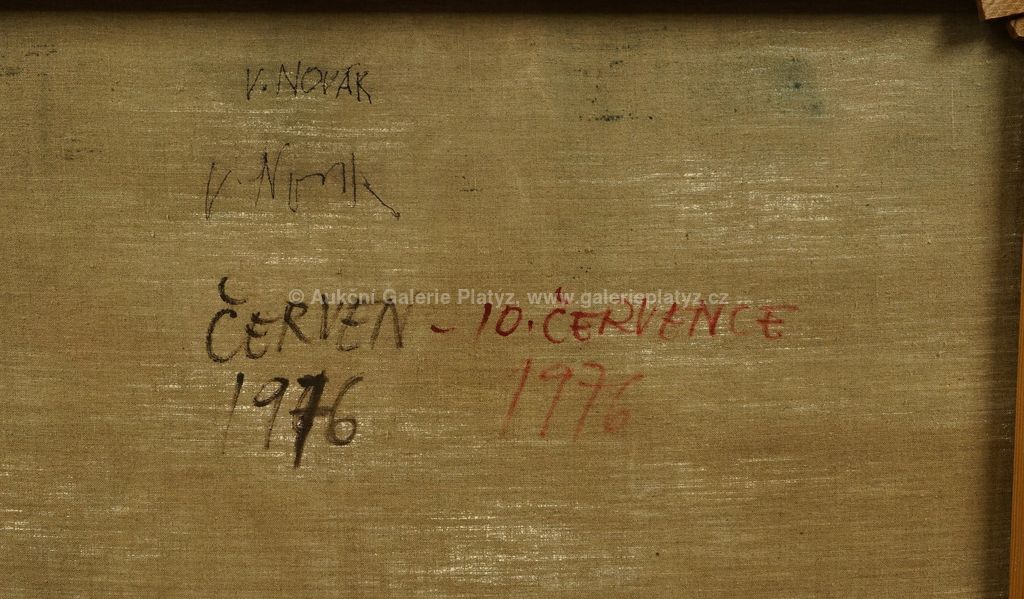 V. NOVÁK
V. Novák
© Aukční Galerie Platýz, www.galerieplatyz.cz
ČERVEN - 10. ČERVENCE
1976 1976